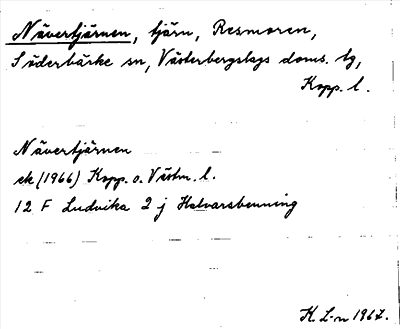 Nävertjärnen, tjärn, Resmoren,
Söderbärke sn, Västerbergslags doms. tg,
Kopp. l.
Nävertjärnen
ek (1966) Kopp. o. Västm. l.
12 F Ludvika 2 j Halvarsbenning
K. L-n 1967.